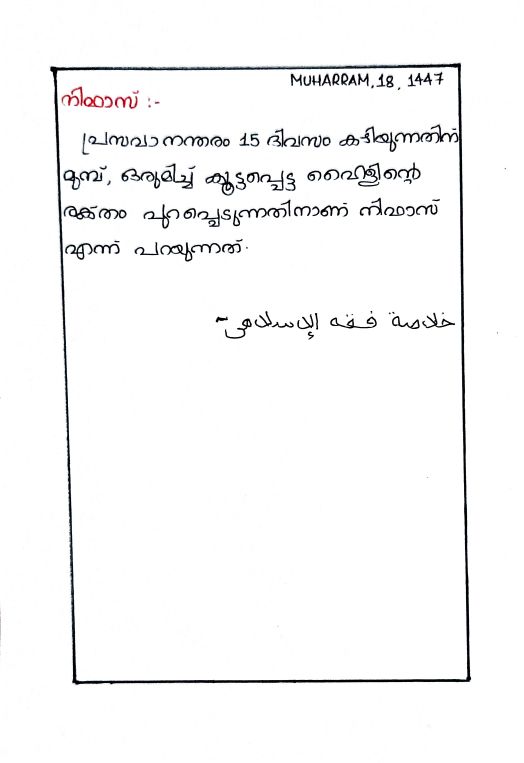 MUHARRAM, 18, 1447
നിഫാസ് :-
പ്രസവാനന്തരം 15 ദിവസം കഴിയുന്നതിന്
മുമ്പ്, ഒരുമിച്ച് കൂട്ടപ്പെട്ട ഹൈളിന്റെ
രക്തം പുറപ്പെടുന്നതിനാണ് നിഫാസ്
എന്ന് പറയുന്നത്.
خلاصة فقه الإسلامي-